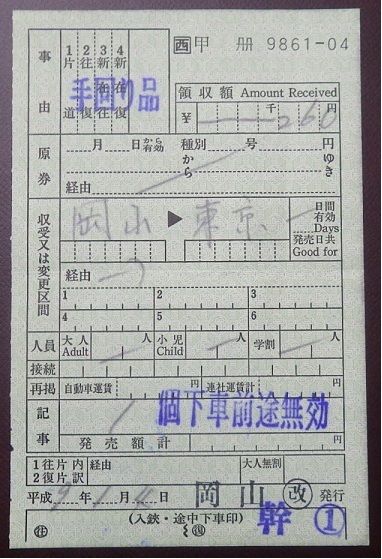 西 甲 册 9861-04
事由
1片道 2往復 3新在往 4新在復
手回り品
領収額 Amount Received
¥ 千 円 260
原券
月 日から有効 種別 号 円
から ゆき
経由
収受又は変更区間
岡山 ▶ 東京
日間有効 Days
発売日共 Good for
経由
1 2 3
4 5 6
人員 大人 Adult 人 小児 Child 人 学割 人
接続
再掲 自動車運賃 円 連社運賃計 円
記事
個下車前途無効
発売額計 円
1往片 2復片 内訳 経由 大人無割
平成 9年 1月 日 岡山 改 発行
(入鋏・途中下車印) 幹 1
往 復